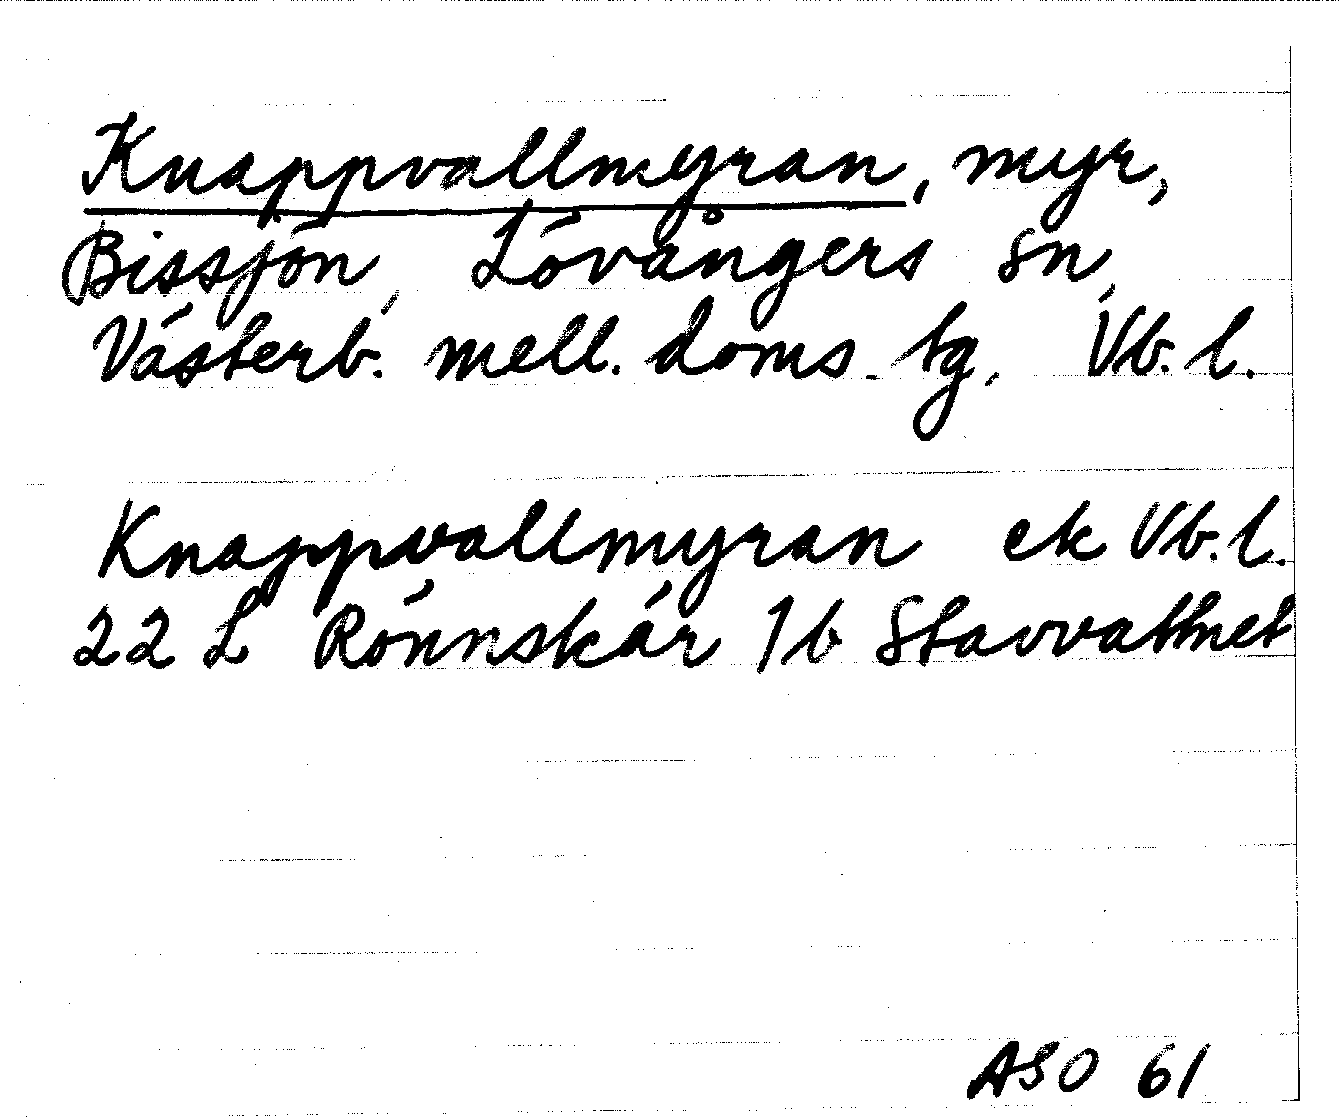 Knappvallmyran, myr,
Bissjön, Lövångers sn,
Västerb. mell. doms. tg, Vb. l.
Knappvallmyran ek Vb. l.
22 L Rönnskär 1b Stavvattnet
ASO 61